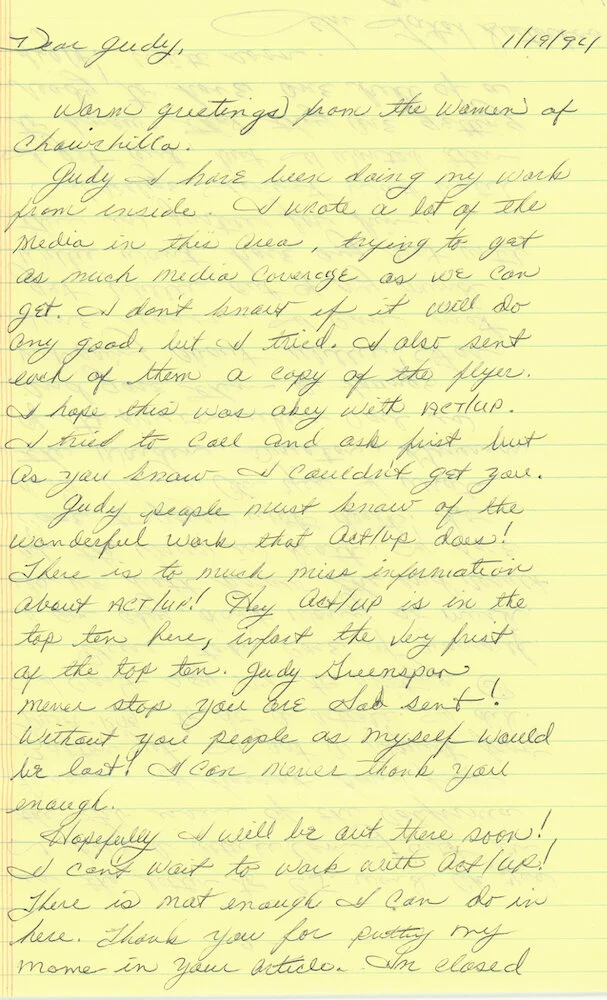 Dear Judy, 1/19/94
Warm greetings from the Women of
Chowchilla.
Judy I have been doing my work
from inside. I wrote a lot of the
Media in this area, trying to get
as much media coverage as we can
get. I don't know if it will do
any good, but I tried. I also sent
each of them a copy of the flyer.
I hope this was okey with ACT/UP.
I tried to call and ask first but
As you know I couldn't get you.
Judy people must know of the
wonderful work that Act/up does!
There is to much miss information
About ACT/UP! Hey Act/UP is in the
top ten here, infact the very first
of the top ten. Judy Greenspan
never stop you are God sent!
Without you people as myself would
be lost! I can never thank you
enough.
Hopefully I will be out there soon!
I can't wait to work with Act/UP!
There is not enough I can do in
here. Thank you for putting my
name in your article. In closed